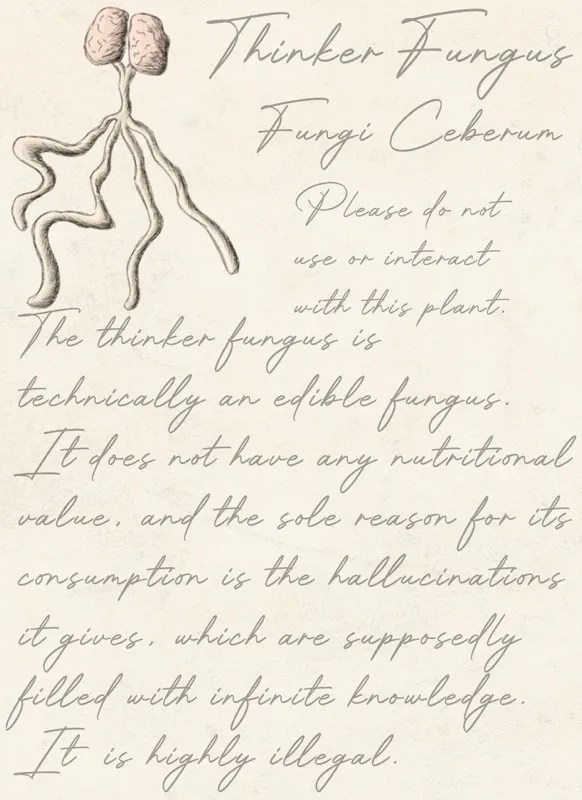 Thinker Fungus
Fungi Ceberum
Please do not
use or interact
with this plant.
The thinker fungus is
technically an edible fungus.
It does not have any nutritional
value, and the sole reason for its
consumption is the hallucinations
it gives, which are supposedly
filled with infinite knowledge.
It is highly illegal.